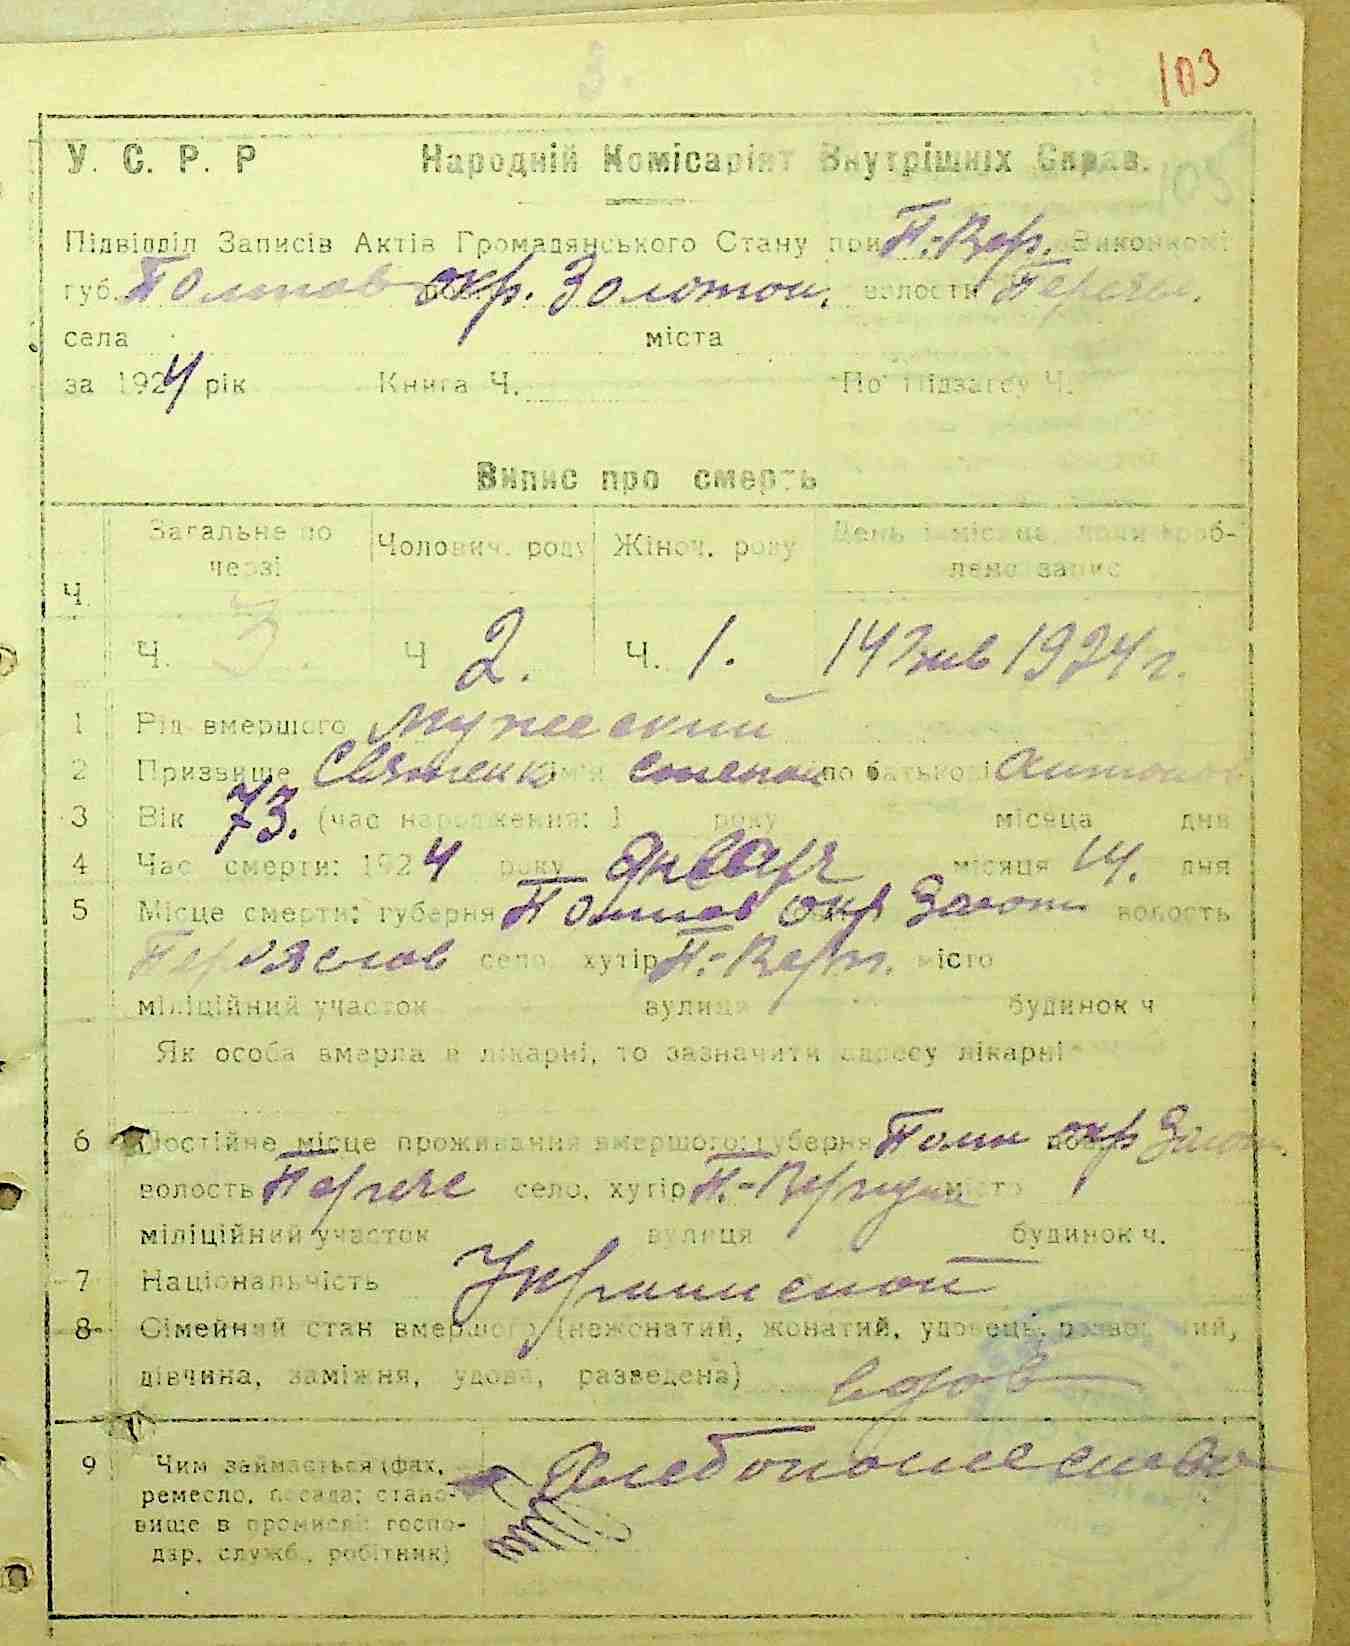 3.
103
У. С. Р. Р Народній Комісаріят Внутрішніх Справ.
Підвідділ Записів Актів Громадянського Стану при П.-Вер. Виконкомі
губ. Полтав окр. Золотон. волости
села міста
за 1924 рік Книга Ч. По Підзагсу Ч.
Випис про смерть
Ч. Загальне по черзі Чолович. роду Жіноч. роду День і місяць, коли зроблено запис
Ч. 3. Ч 2. Ч. 1. 14 Янв 1924 г.
1 Рід вмершого Мужеский
2 Призвище ім'я Степан по батькові Антонов
3 Вік 73. (час народження: 1 року місяца дня
4 Час смерти: 1924 року Января місяця 14. дня
5 Місце смерти: губерня Полтав окр Золот волость
Переяслов село, хутір П.-Верг. місто
міліційний участок вулиця будинок ч
Як особа вмерла в лікарні, то зазначити адресу лікарні
6 Постійне місце проживання вмершого: губерня Полт окр Золот.
волость село, хутір місто
міліційний участок вулиця будинок ч.
7 Національність
8 Сімейний стан вмершого (нежонатий, жонатий, удовець, разведений,
дівчина, заміжня, удова, разведена) вдов
9 Чим займається (фах, Хлебопашество
ремесло, посада; стано-
вище в промислі: госпо-
дар, служб., робітник)